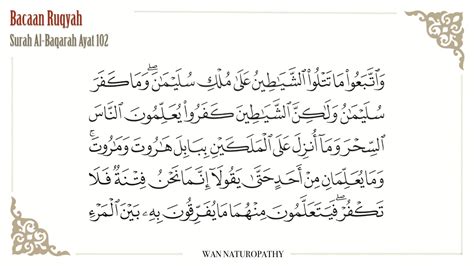 Bacaan Ruqyah
Surah Al-Baqarah Ayat 102
وَاتَّبَعُوا۟ مَا تَتْلُوا۟ الشَّيَٰطِينُ عَلَىٰ مُلْكِ سُلَيْمَٰنَ ۖ وَمَا كَفَرَ
سُلَيْمَٰنُ وَلَٰكِنَّ الشَّيَٰطِينَ كَفَرُوا۟ يُعَلِّمُونَ النَّاسَ
السِّحْرَ وَمَآ أُنزِلَ عَلَى الْمَلَكَيْنِ بِبَابِلَ هَٰرُوتَ وَمَٰرُوتَ ۚ
وَمَا يُعَلِّمَانِ مِنْ أَحَدٍ حَتَّىٰ يَقُولَآ إِنَّمَا نَحْنُ فِتْنَةٌ فَلَا
تَكْفُرْ ۖ فَيَتَعَلَّمُونَ مِنْهُمَا مَا يُفَرِّقُونَ بِهِۦ بَيْنَ الْمَرْءِ
WAN NATUROPATHY